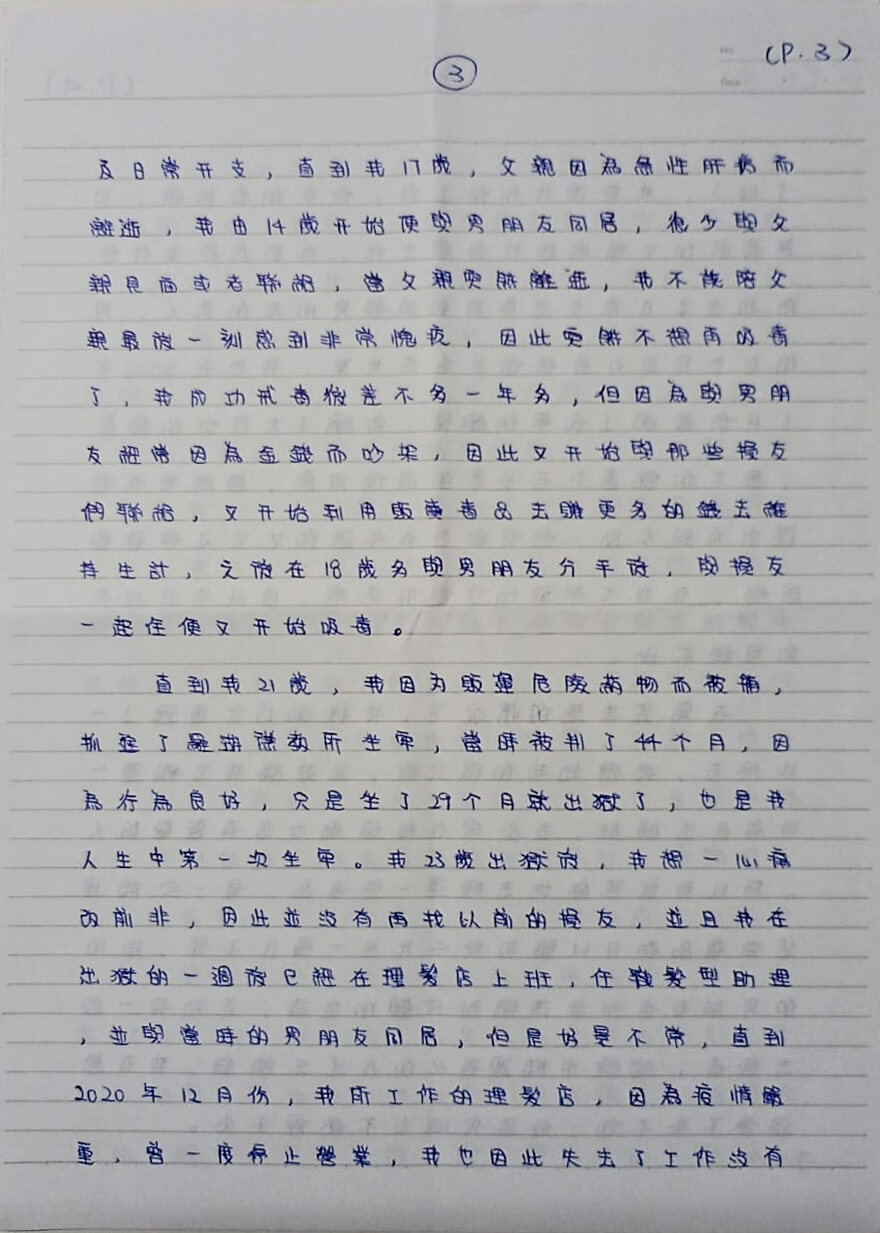 (P.3)
3
及日常开支，直到我17歲，父親因為急性肝病而
離逝，我由14歲开始便與男朋友同居，很少與父
親見面或者聯絡，當父親突然離逝，我不能陪父
親最後一刻感到非常愧疚，因此更然不想再吸毒
了，我成功戒毒後差不多一年多，但因為與男朋
友經常因為金錢而吵架，因此又开始與那些損友
們聯絡，又开始利用販賣毒品去賺更多的錢去維
持生計，之後在18歲多與男朋友分手後，與損友
一起住便又开始吸毒。
直到我21歲，我因为販運危险葯物而被捕，
抓進了羅湖懲教所坐牢，當時被判了44个月，因
為行為良好，只是坐了29个月就出獄了，也是我
人生中第一次坐牢。我23歲出獄後，我想一心痛
改前非，因此並沒有再找以前的損友，並且我在
出獄的一週後已經在理髮店上班，任職髮型助理
，並與當時的男朋友同居，但是好景不常，直到
2020年12月份，我所工作的理髮店，因為疫情嚴
重，曾一度停止營業，我也因此失去了工作沒有